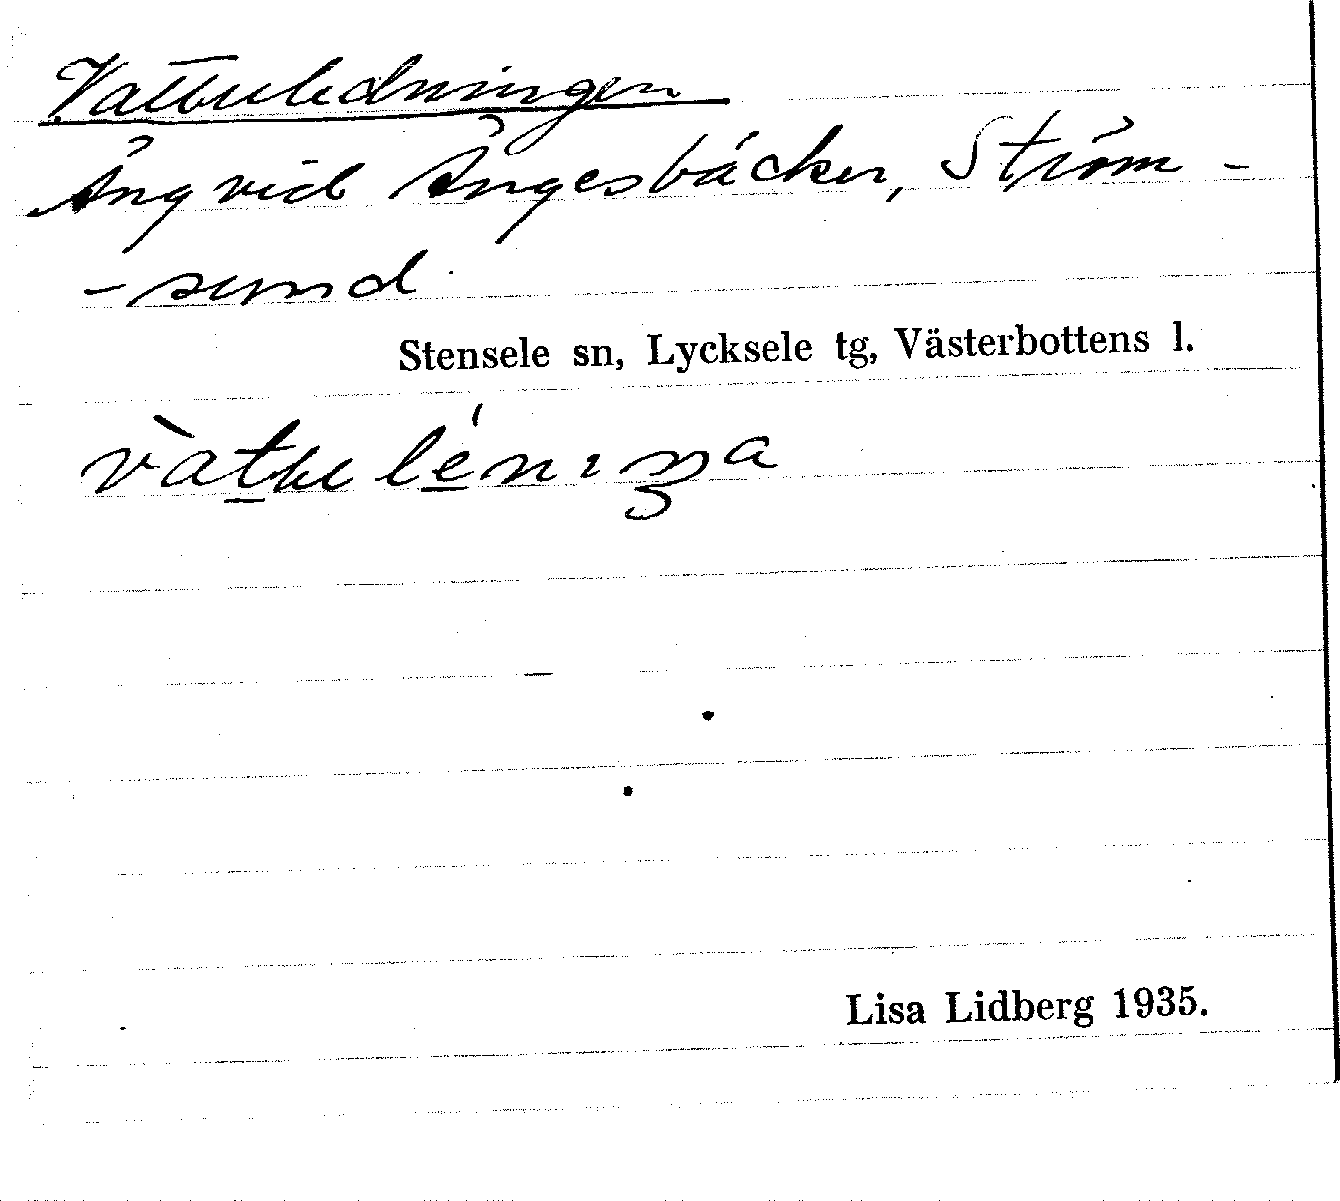 Vattuledningen
Äng vid Ängesbäcken, Ström-
-sund
Stensele sn, Lycksele tg, Västerbottens l.
Lisa Lidberg 1935.